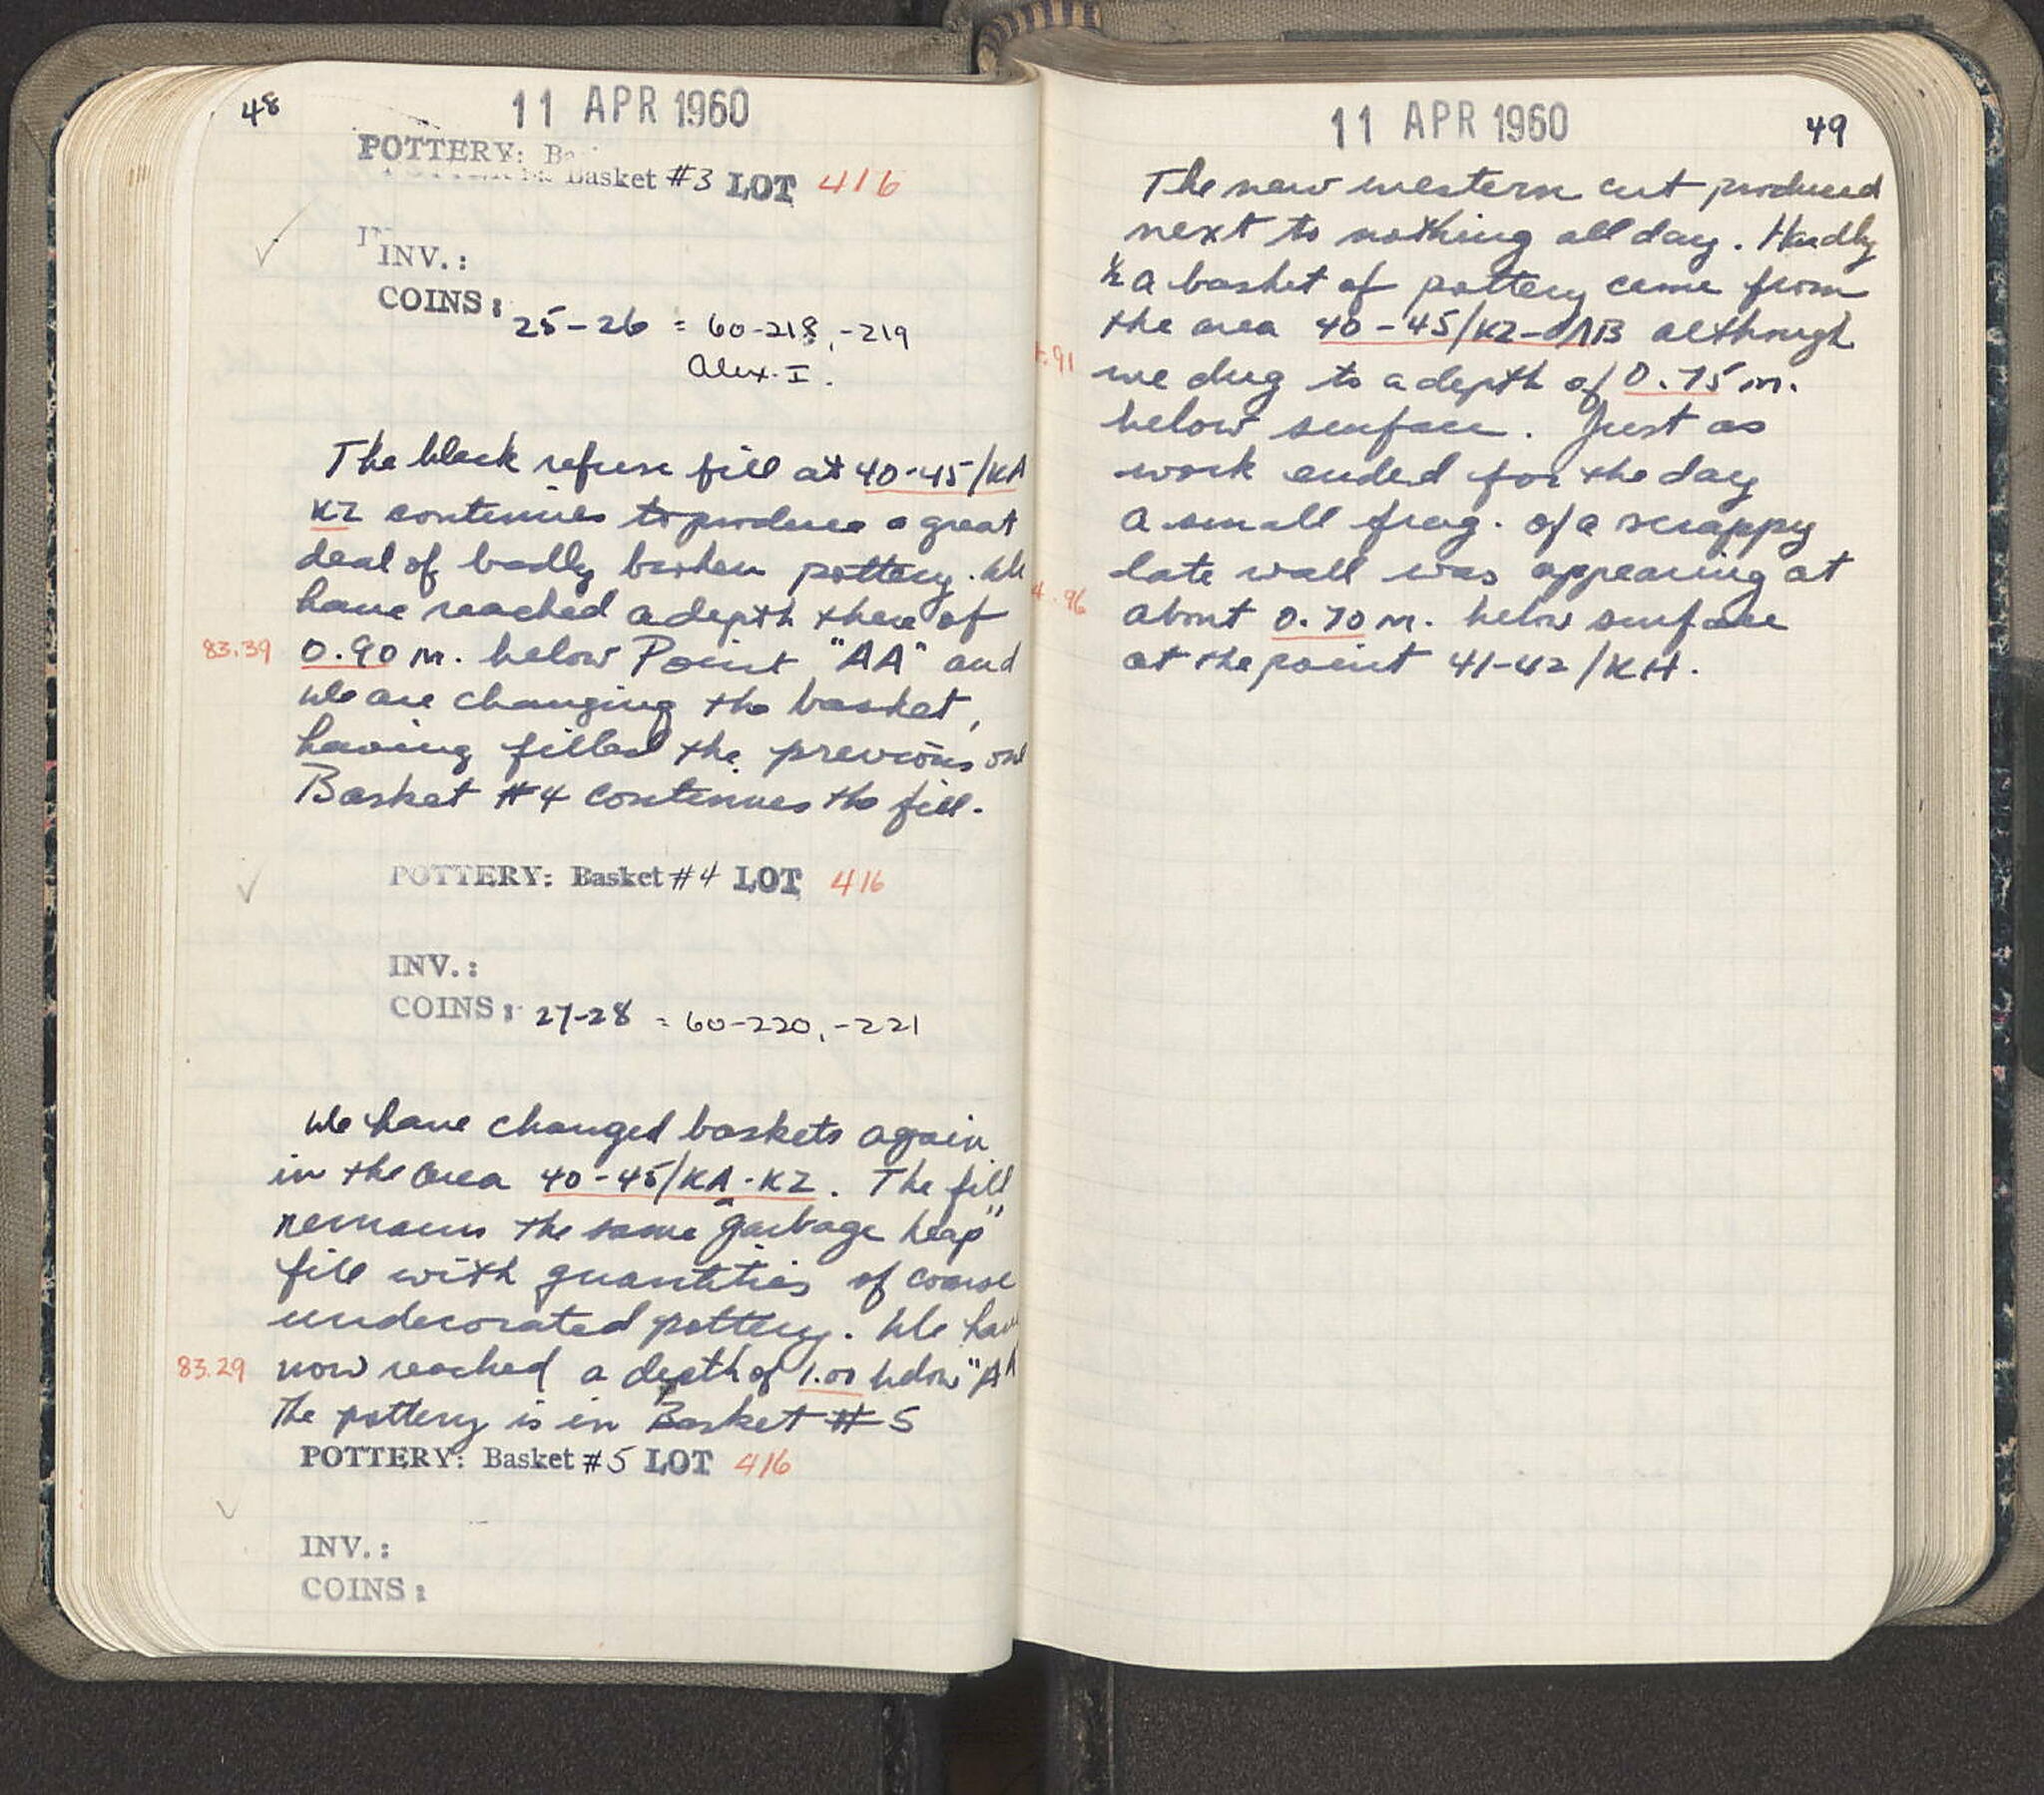 48
11 APR 1960
POTTERY: Ba
Basket #3 LOT 416
INV.:
COINS: 25-26 = 60-218, -219
Alex. I.
The black refuse fill at 40-45/KA
KZ continues to produce a great
deal of badly broken pottery. We
have reached a depth there of
83.39 0.90 m. below Point "AA" and
we are changing the basket,
having filled the previous one
Basket #4 continues the fill.
POTTERY: Basket #4 LOT 416
INV.:
COINS: 27-28 = 60-220, -221
We have changed baskets again
in the area 40-45/KA-KZ. The fill
remains the same "garbage heap"
fill with quantities of coarse
undecorated pottery. We have
83.29 now reached a depth of 1.00 below "AA
The pottery is in Basket #5
POTTERY: Basket #5 LOT 416
INV.:
COINS:
11 APR 1960
49
The new western cut produced
next to nothing all day. Hardly
½ a basket of pottery came from
the area 40-45/KZ- although
.91 we dug to a depth of 0.75 m.
below surface. Just as
work ended for the day
a small frag. of a scrappy
late wall was appearing at
4.96 about 0.70 m. below surface
at the point 41-42/KH.